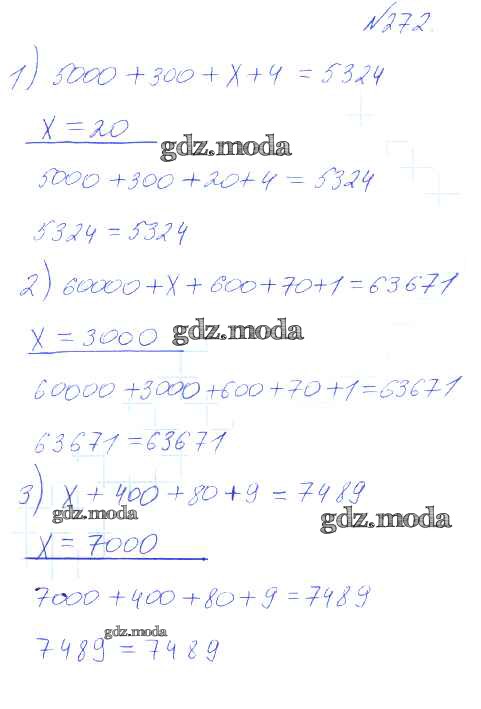 №272.
1) 5000 + 300 + x + 4 = 5324
x = 20
gdz.moda
5000 + 300 + 20 + 4 = 5324
5324 = 5324
2) 60000 + x + 600 + 70 + 1 = 63671
x = 3000
gdz.moda
60000 + 3000 + 600 + 70 + 1 = 63671
63671 = 63671
3) x + 400 + 80 + 9 = 7489
gdz.moda
gdz.moda
x = 7000
7000 + 400 + 80 + 9 = 7489
gdz.moda
7489 = 7489